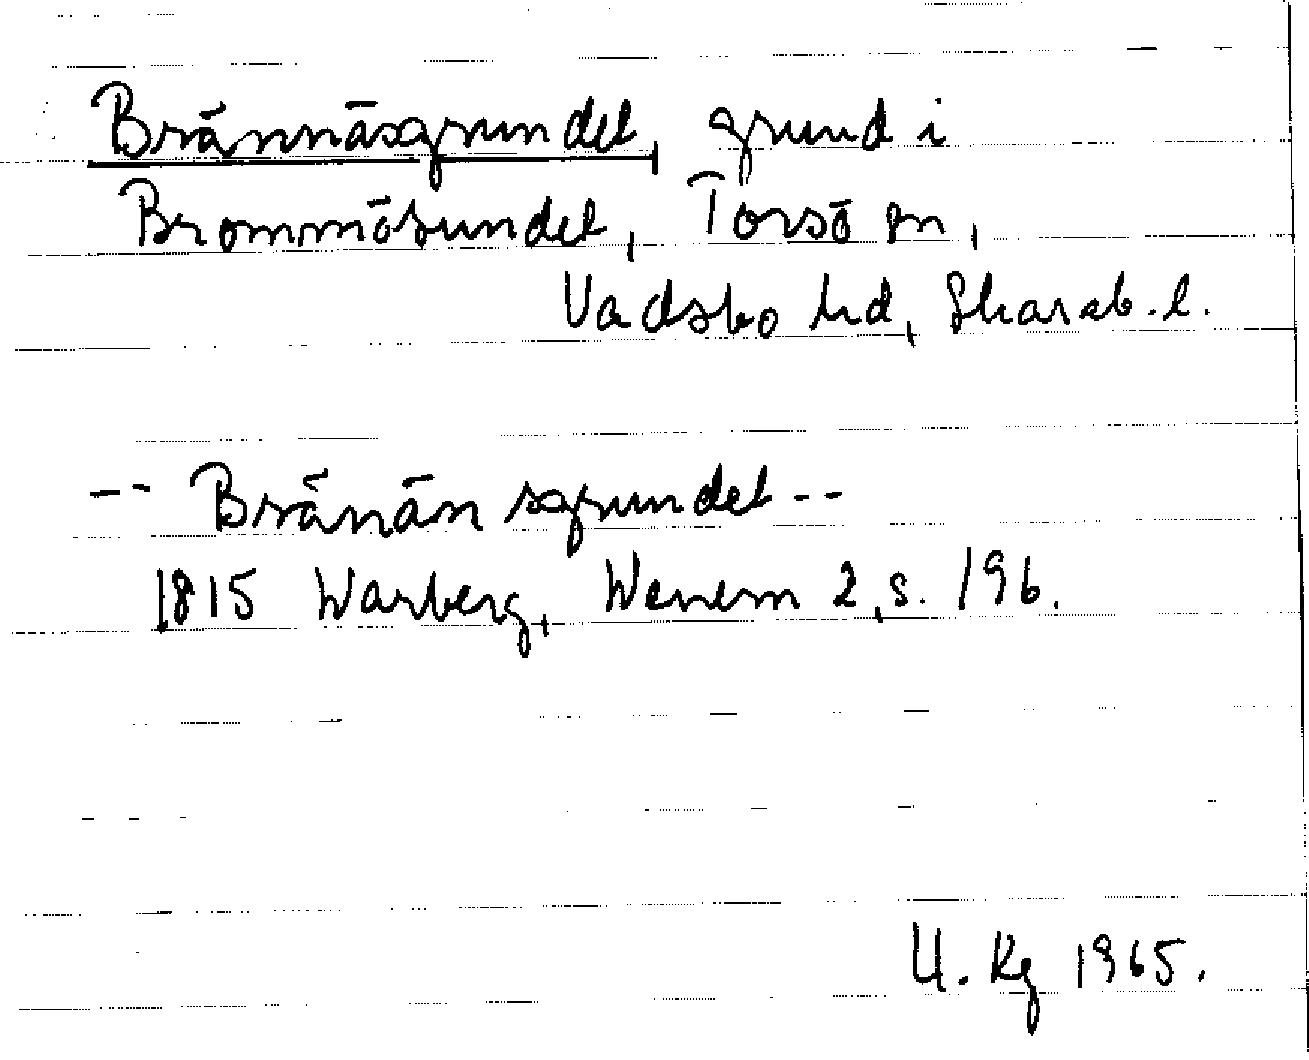 Brännäsgrundet, grund i
Brommösundet, Torsö sn,
Vadsbo hd, Skarab. l.
-- Bränänsgrundet --
1815 Warberg, Wenern 2, s. 196.
U. Kg 1965.